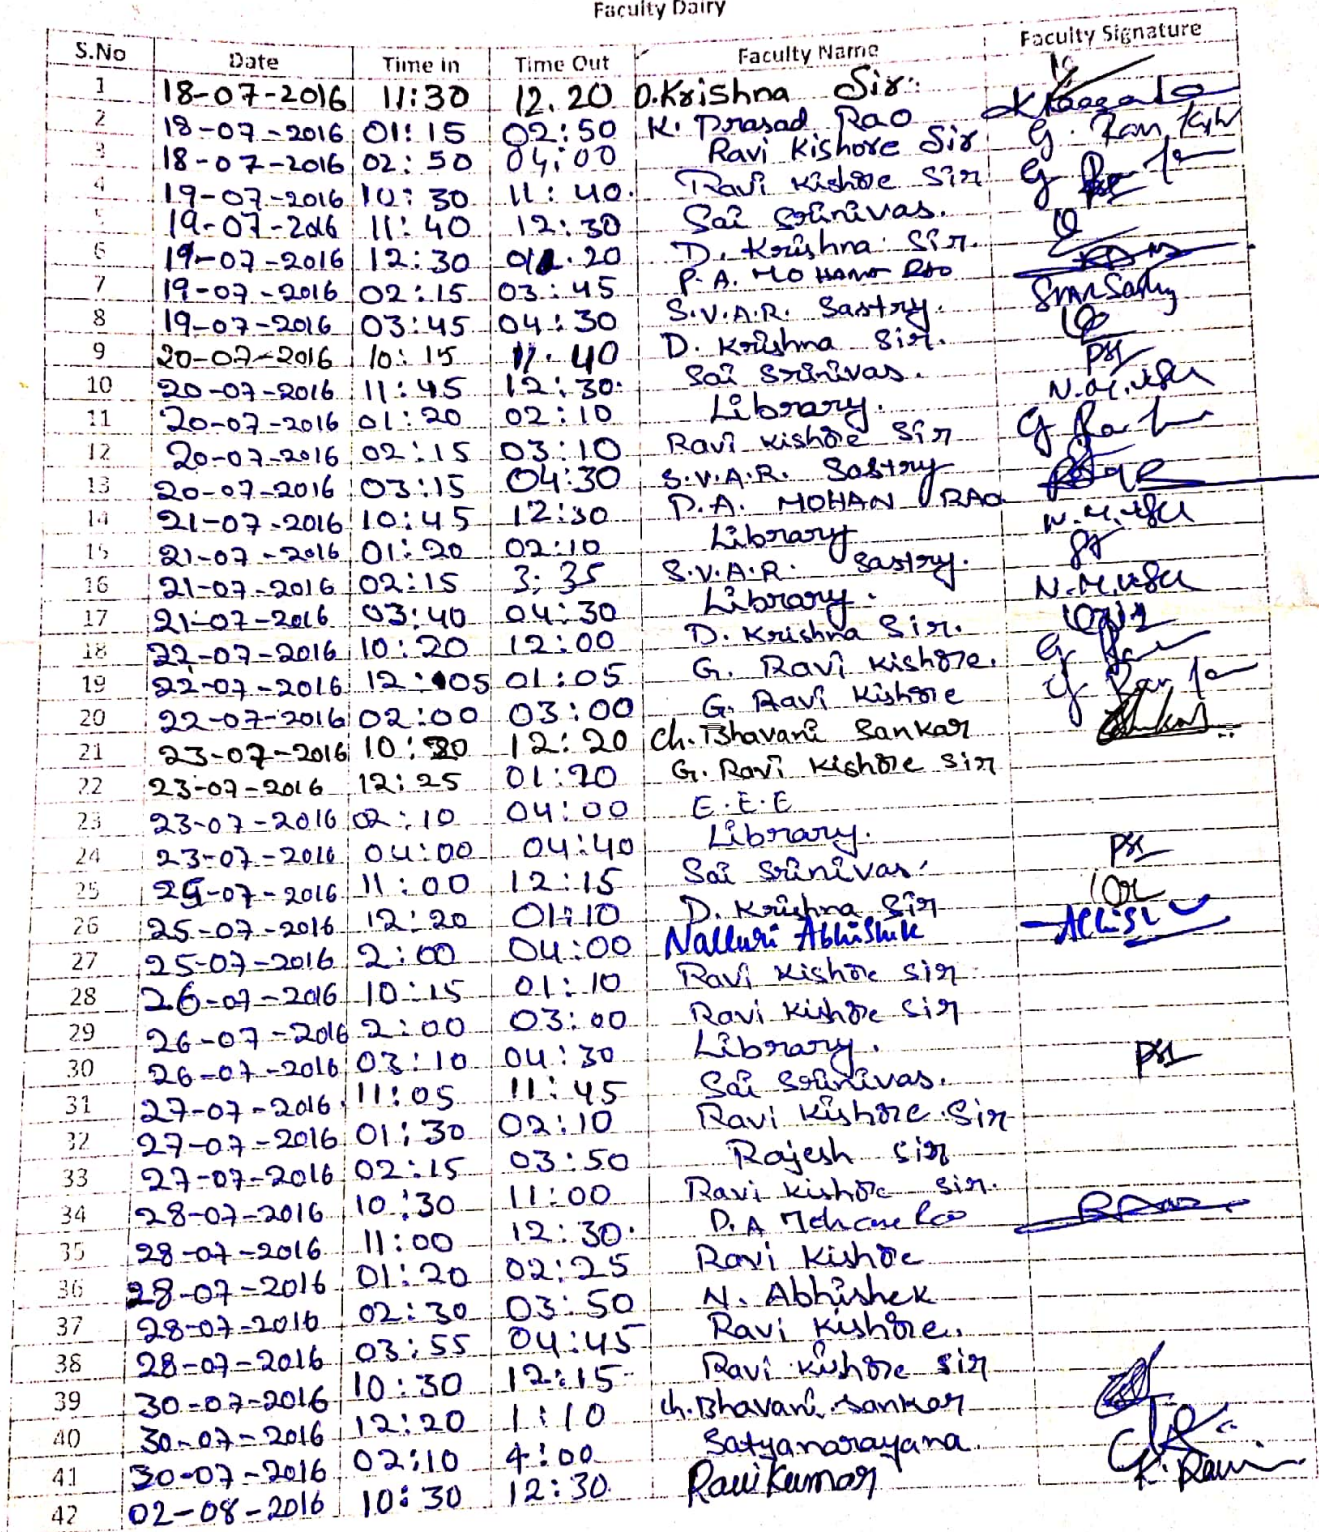 Faculty Dairy
S.No Date Time in Time Out Faculty Name Faculty Signature
1 18-07-2016 11:30 12.20 D.Krishna Sir
2 18-07-2016 01:15 02:50 K. Prasad Rao
3 18-07-2016 02:50 04:00 Ravi Kishore Sir
4 19-07-2016 10:30 11:40 Ravi Kishore Sir
5 19-07-2016 11:40 12:30 Sai Srinivas.
6 19-07-2016 12:30 01.20 D. Krishna Sir.
7 19-07-2016 02:15 03:45 P.A. MOHANA RAO
8 19-07-2016 03:45 04:30 S.V.A.R. Sastry.
9 20-07-2016 10:15 11.40 D. Krishna Sir.
10 20-07-2016 11:45 12:30 Sai Srinivas.
11 20-07-2016 01:20 02:10 Library.
12 20-07-2016 02:15 03:10 Ravi Kishore Sir
13 20-07-2016 03:15 04:30 S.V.A.R. Sastry
14 21-07-2016 10:45 12:30 P.A. MOHAN RAO
15 21-07-2016 01:20 02:10 Library
16 21-07-2016 02:15 3:35 S.V.A.R. Sastry.
17 21-07-2016 03:40 04:30 Library.
18 22-07-2016 10:20 12:00 D. Krishna Sir.
19 22-07-2016 12:05 01:05 G. Ravi Kishore.
20 22-07-2016 02:00 03:00 G. Ravi Kishore
21 23-07-2016 10:30 12:20 Ch. Bhavani Sankar
22 23-07-2016 12:25 01:20 G. Ravi Kishore Sir
23 23-07-2016 02:10 04:00 E.E.E
24 23-07-2016 04:00 04:40 Library.
25 25-07-2016 11:00 12:15 Sai Srinivas.
26 25-07-2016 12:20 01:10 D. Krishna Sir
27 25-07-2016 2:00 04:00 Nalluri Abhishek
28 26-07-2016 10:15 01:10 Ravi Kishore Sir
29 26-07-2016 2:00 03:00 Ravi Kishore Sir
30 26-07-2016 03:10 04:30 Library.
31 27-07-2016 11:05 11:45 Sai Srinivas.
32 27-07-2016 01:30 02:10 Ravi Kishore Sir
33 27-07-2016 02:15 03:50 Rajesh Sir
34 28-07-2016 10:30 11:00 Ravi Kishore Sir.
35 28-07-2016 11:00 12:30 P.A Mohana Rao
36 28-07-2016 01:20 02:25 Ravi Kishore
37 28-07-2016 02:30 03:50 N. Abhishek
38 28-07-2016 03:55 04:45 Ravi Kishore.
39 30-07-2016 10:30 12:15 Ravi Kishore Sir
40 30-07-2016 12:20 1:10 Ch.Bhavani Sankar
41 30-07-2016 02:10 4:00 Satyanarayana
42 02-08-2016 10:30 12:30 Ravi Kumar K. Ravi